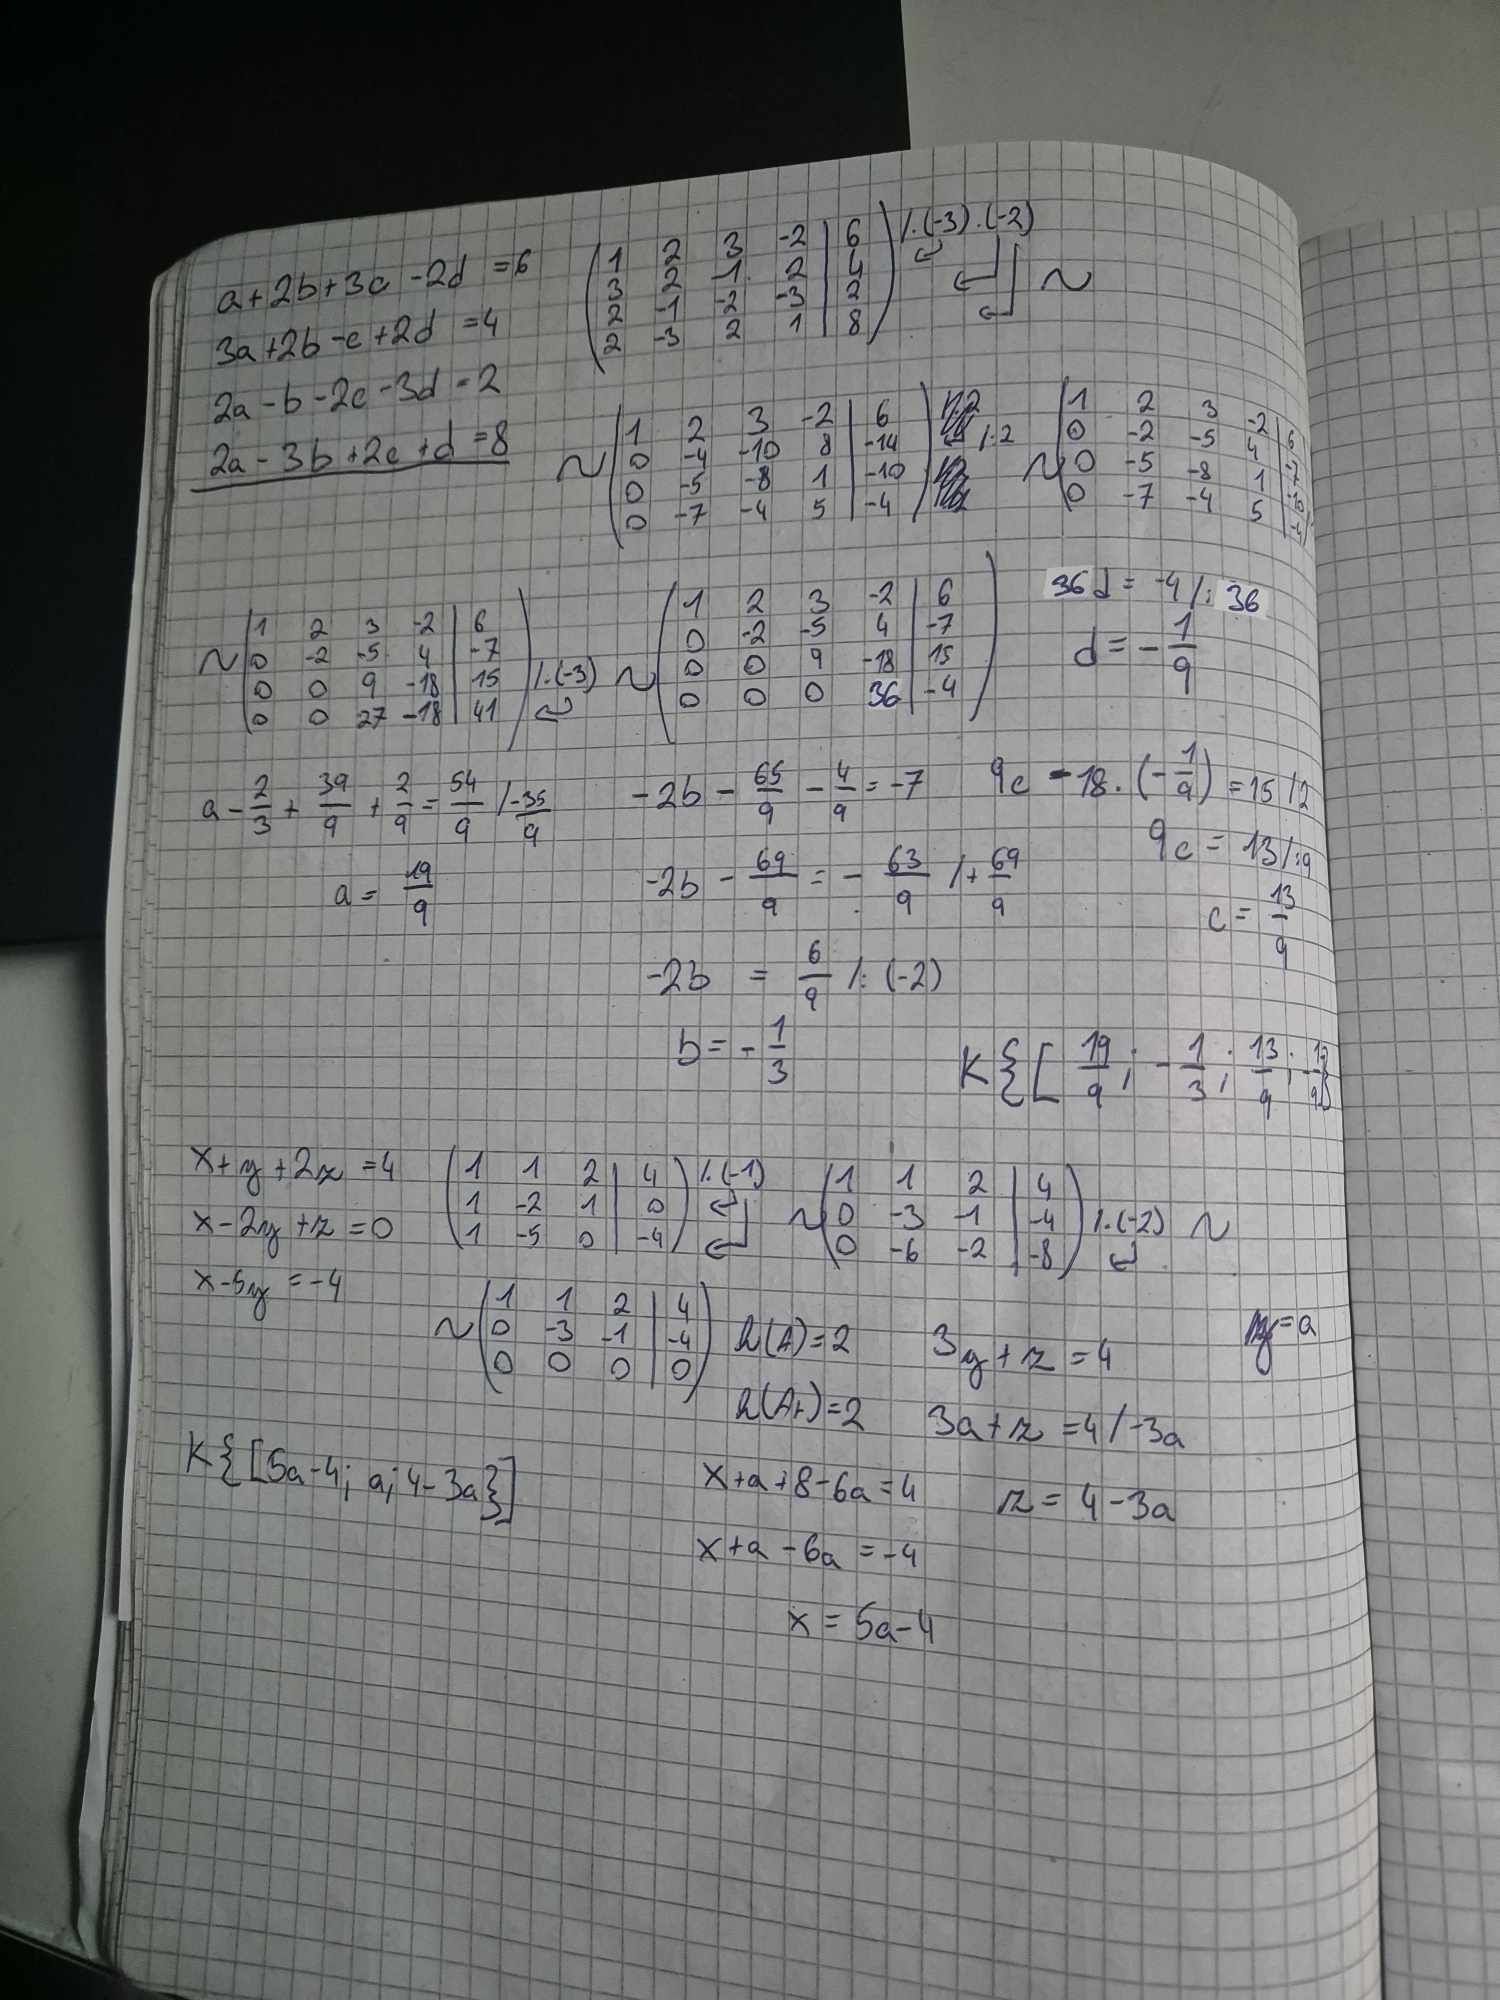 a+2b+3c-2d=6
3a+2b-c+2d=4
2a-b-2c-3d=2
2a-3b+2c+d=8
(1 2 3 -2 | 6) /·(-3) ·(-2)
3 2 -1 2 | 4
2 -1 -2 -3 | 2 ~
2 -3 2 1 | 8
~ (1 2 3 -2 | 6)
0 -4 -10 8 | -14 /:2
0 -5 -8 1 | -10
0 -7 -4 5 | -4
~ (1 2 3 -2 | 6)
0 -2 -5 4 | -7
0 -5 -8 1 | -10
0 -7 -4 5 | -4
~ (1 2 3 -2 | 6)
0 -2 -5 4 | -7
0 0 9 -18 | 15 /·(-3)
0 0 27 -18 | 41
~ (1 2 3 -2 | 6)
0 -2 -5 4 | -7
0 0 9 -18 | 15
0 0 0 36 | -4
36d = -4 /:36
d = -1/9
9c - 18·(-1/9) = 15 /2
9c = 13 /:9
c = 13/9
-2b - 65/9 - 4/9 = -7
-2b - 69/9 = -63/9 /+69/9
-2b = 6/9 /:(-2)
b = -1/3
a - 2/3 + 39/9 + 2/9 = 54/9 /-35/9
a = 19/9
K{[19/9; -1/3; 13/9; -1/9]}
x+y+2z=4
x-2y+z=0
x-5y=-4
(1 1 2 | 4) /·(-1)
1 -2 1 | 0
1 -5 0 | -4
~ (1 1 2 | 4)
0 -3 -1 | -4 /·(-2) ~
0 -6 -2 | -8
~ (1 1 2 | 4)
0 -3 -1 | -4
0 0 0 | 0
h(A)=2
h(Ar)=2
y=a
3y+z=4
3a+z=4 /-3a
z=4-3a
x+a+8-6a=4
x+a-6a=-4
x=5a-4
K{[5a-4; a; 4-3a}]